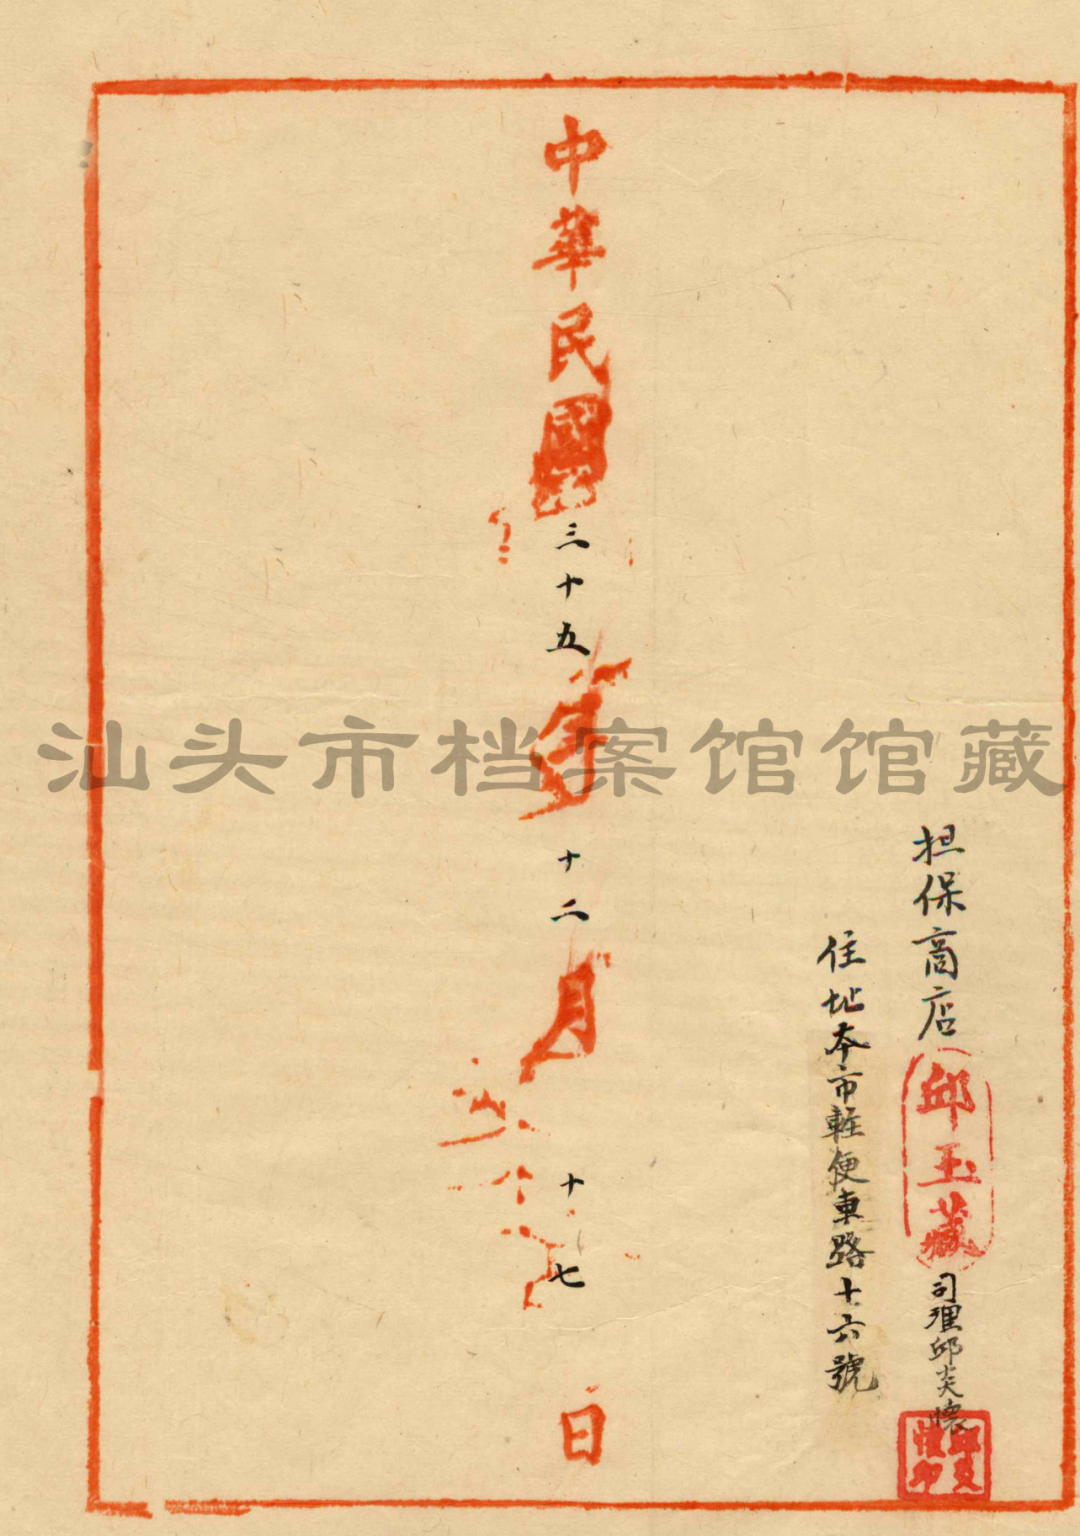 担保商店邱玉藏司理邱炎懷
住址本市輕便車路十六號
中華民國三十五年十二月十七日
邱炎懷印
汕头市档案馆馆藏